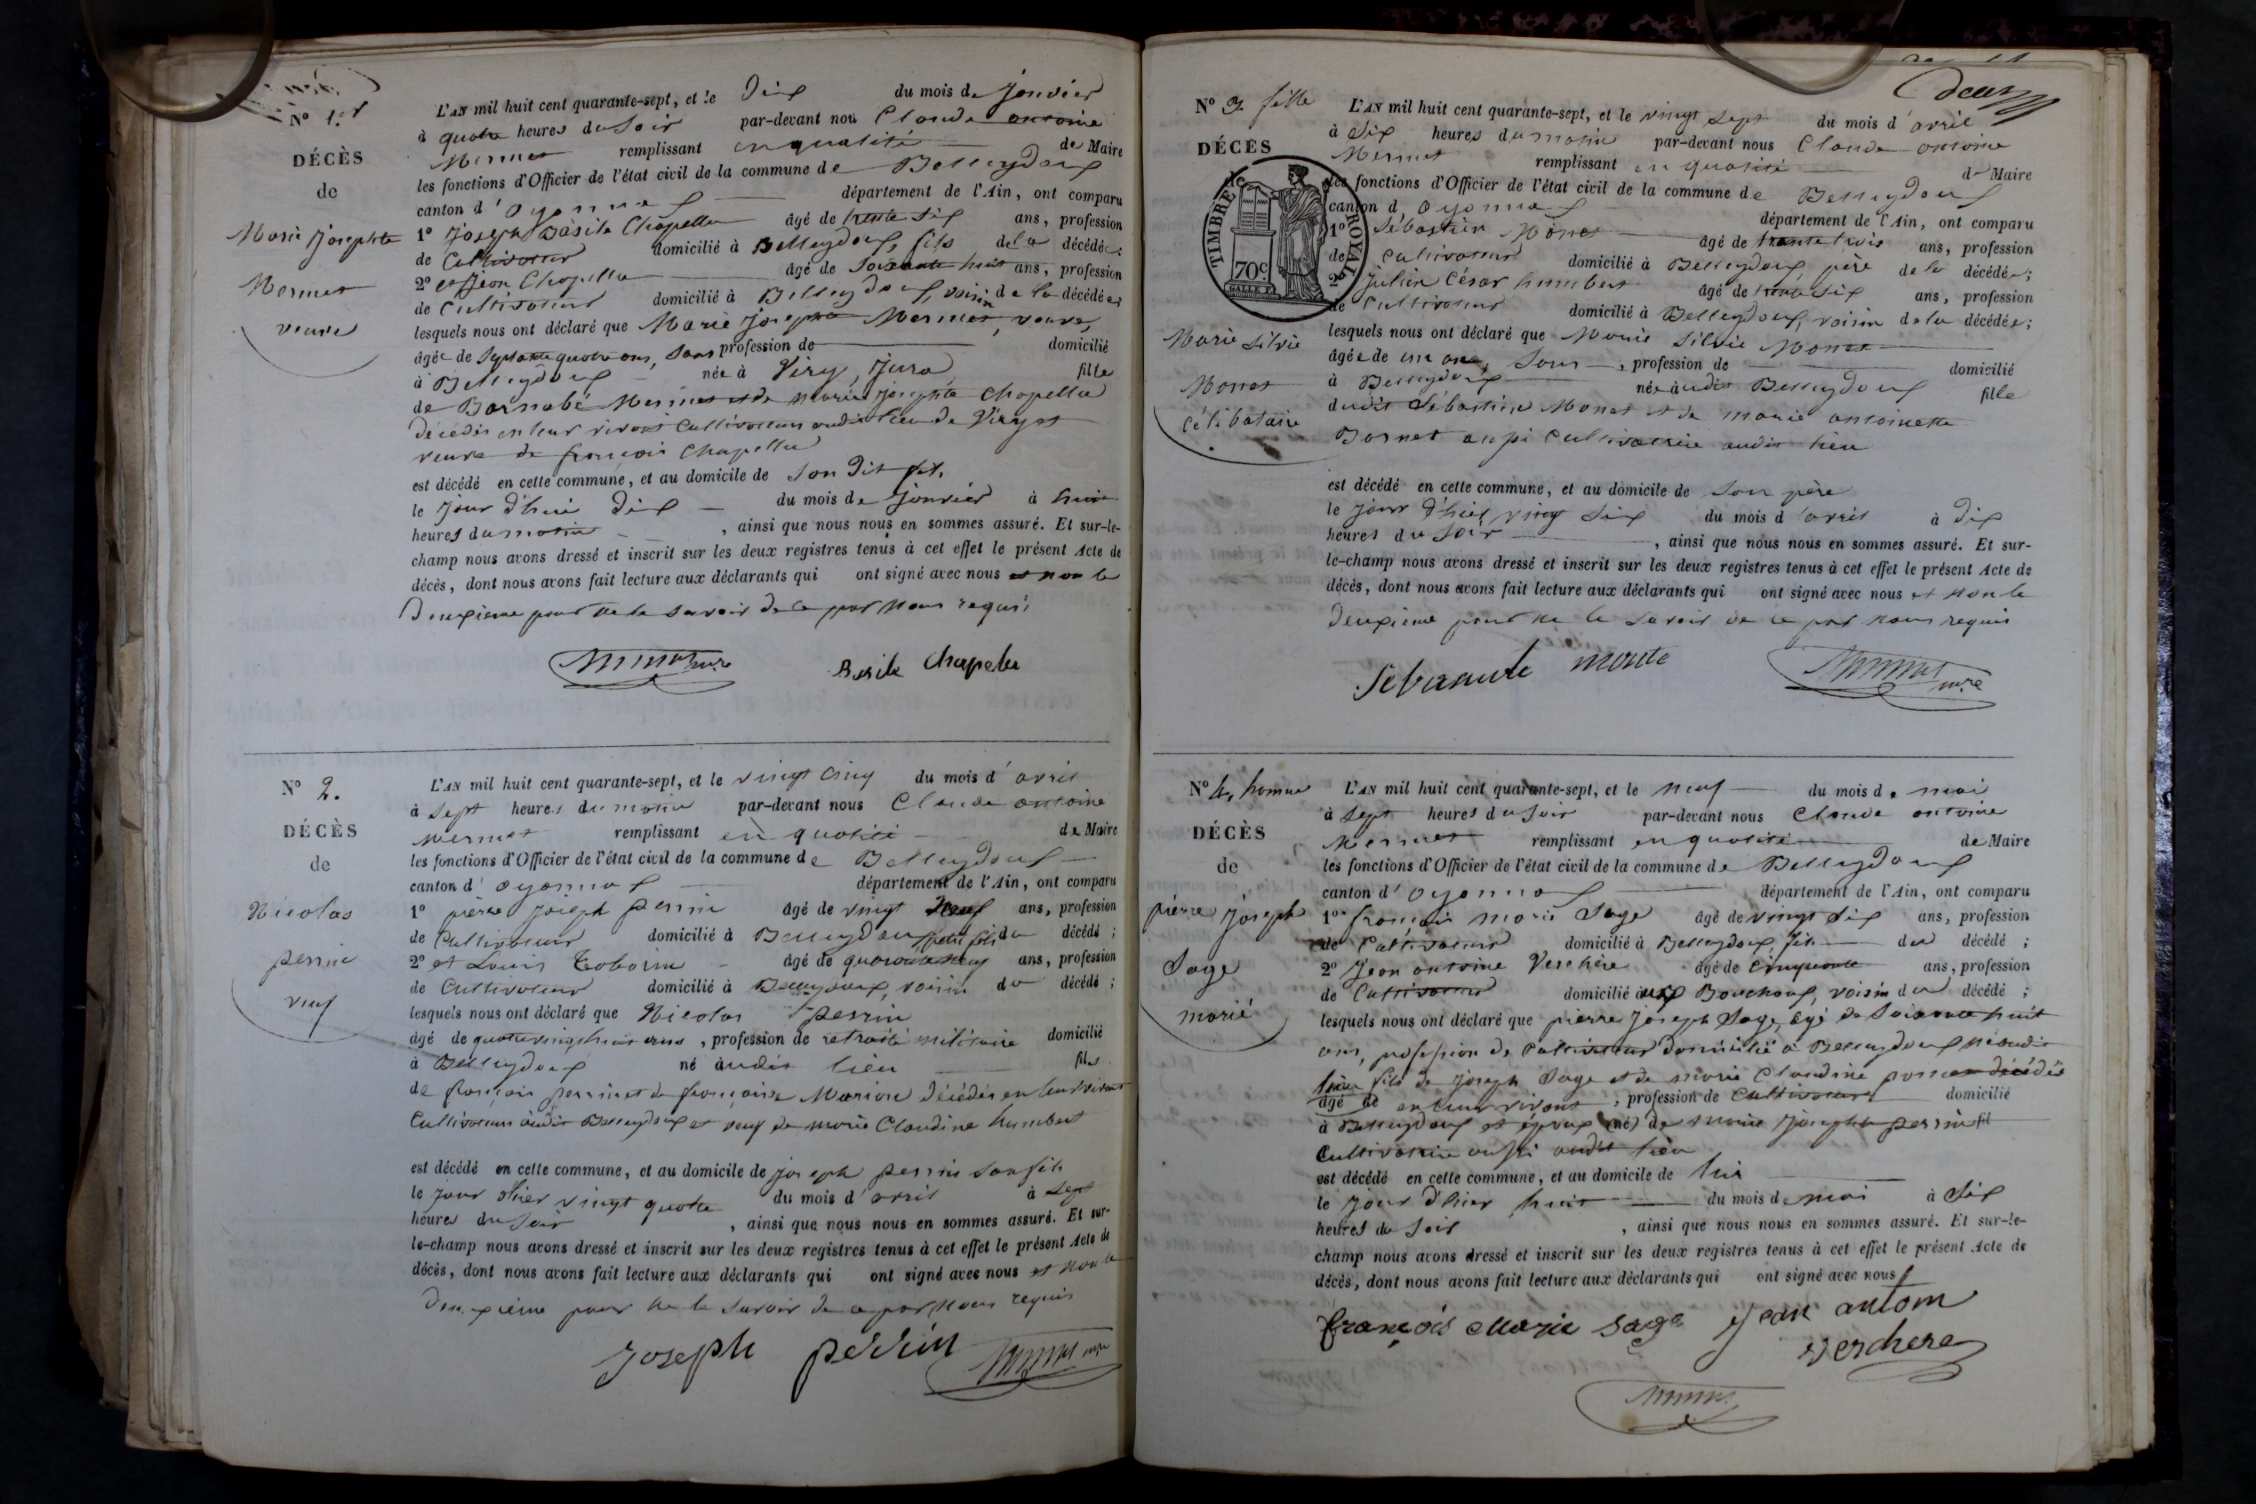 N° 1.er
DÉCÈS
de
Marie Josephte
Mermet
veuve
L'AN mil huit cent quarante-sept, et le Dix du mois de Janvier
à quatre heures du Soir par-devant nou Claude antoine
Mermet remplissant en qualité de Maire
les fonctions d'Officier de l'état civil de la commune de Belleydoux
canton d'oyonnax département de l'Ain, ont comparu
1° Joseph Basile Chapellu âgé de trente Six ans, profession
de Cultivateur domicilié à Belleydoux, fils de la décédée;
2° et Jean Chapellu âgé de Soixante huit ans, profession
de Cultivateur domicilié à Belleydoux, voisin de la décédée;
lesquels nous ont déclaré que Marie Josephte Mermet, veuve,
âgée de Septante quatre ans, Sans profession de domicilié
à Belleydoux née à Viry, Jura fille
de Barnabé Mermet et de marie Josephte Chapellu
décédés en leur vivant Cultivateurs audit lieu de Viry et
veuve de françois Chapellu
est décédé en cette commune, et au domicile de Son dit fils
le Jour d'hui Dix du mois de Janvier à huit
heures du matin , ainsi que nous nous en sommes assuré. Et sur-le-
champ nous avons dressé et inscrit sur les deux registres tenus à cet effet le présent Acte de
décès, dont nous avons fait lecture aux déclarants qui ont signé avec nous et non le
Deuxième pour ne le savoir de ce par nous requis
Mermet mre Basile Chapelu
N° 2.
DÉCÈS
de
Nicolas
perrin
veuf
L'AN mil huit cent quarante-sept, et le vingt cinq du mois d'avril
à Sept heures du matin par-devant nous Claude antoine
Mermet remplissant en qualité de Maire
les fonctions d'Officier de l'état civil de la commune de Belleydoux
canton d'oyonnax département de l'Ain, ont comparu
1° pierre Joseph perrin âgé de vingt Neuf ans, profession
de Cultivateur domicilié à Belleydoux, petit fils du décédé;
2° et Louis âgé de quarante neuf ans, profession
de Cultivateur domicilié à Belleydoux, voisin du décédé;
lesquels nous ont déclaré que Nicolas perrin
âgé de quatre vingt huit ans, profession de retraité militaire domicilié
à Belleydoux né audit lieu fils
de françois perrin et de françoise Marion décédés en leur vivant
Cultivateurs audit Belleydoux et veuf de marie Claudine humbert
est décédé en cette commune, et au domicile de joseph perrin son fils
le jour d'hier vingt quatre du mois d'avril à Sept
heures du Soir , ainsi que nous nous en sommes assuré. Et sur-
le-champ nous avons dressé et inscrit sur les deux registres tenus à cet effet le présent Acte de
décès, dont nous avons fait lecture aux déclarants qui ont signé avec nous et non le
Deuxième pour ne le Savoir de ce par Nous requis
Joseph perrin Mermet mre
deux
N° 3 fille
DÉCÈS
de
TIMBRE ROYAL
70c
Marie Silvie
Monet
Célibataire
L'AN mil huit cent quarante-sept, et le vingt sept du mois d'avril
à Six heures du matin par-devant nous Claude antoine
Mermet remplissant en qualité de Maire
les fonctions d'Officier de l'état civil de la commune de Belleydoux
canton d'oyonnax département de l'Ain, ont comparu
1° Sébastien Monet âgé de trente trois ans, profession
de Cultivateur domicilié à Belleydoux, père de la décédée;
2° Julien César humbert âgé de trente Six ans, profession
de Cultivateur domicilié à Belleydoux, voisin de la décédée;
lesquels nous ont déclaré que Marie Silvie Monet
âgée de un an, Sans , profession de domicilié
à Belleydoux née audit Belleydoux fille
dudit Sébastien Monet et de marie antoinette
Bornet aussi Cultivatrice audit lieu
est décédé en cette commune, et au domicile de Son père
le jour d'hier vingt Six du mois d'avril à Dix
heures du Soir , ainsi que nous nous en sommes assuré. Et sur-
le-champ nous avons dressé et inscrit sur les deux registres tenus à cet effet le présent Acte de
décès, dont nous avons fait lecture aux déclarants qui ont signé avec nous et non le
deuxième pour ne le Savoir de ce par nous requis
Mermet mre
N° 4, homme
DÉCÈS
de
pierre Joseph
Sage
marié
L'AN mil huit cent quarante-sept, et le neuf du mois de mai
à Sept heures du Soir par-devant nous Claude antoine
Mermet remplissant en qualité de Maire
les fonctions d'Officier de l'état civil de la commune de Belleydoux
canton d'oyonnax département de l'Ain, ont comparu
1° françois marie Sage âgé de vingt Six ans, profession
de Cultivateur domicilié à Belleydoux, fils du décédé;
2° Jean antoine Verchère âgé de cinquante ans, profession
de Cultivateur domicilié aux Bouchoux, voisin du décédé;
lesquels nous ont déclaré que pierre Joseph Sage, âgé de Soixante huit
ans, profession de Cultivateur domicilié à Belleydoux né audit
lieu fils de Joseph Sage et de marie Claudine poncet décédés
âgé de en leur vivant , profession de Cultivateurs domicilié
à Belleydoux et époux né de marie Josephte perrin fil
Cultivatrice aussi audit lieu
est décédé en cette commune, et au domicile de lui
le jour d'hier huit du mois de mai à Six
heures du Soir , ainsi que nous nous en sommes assuré. Et sur-le-
champ nous avons dressé et inscrit sur les deux registres tenus à cet effet le présent Acte de
décès, dont nous avons fait lecture aux déclarants qui ont signé avec nous
françois Marie Sage Jean antoin
Verchere
Mermet